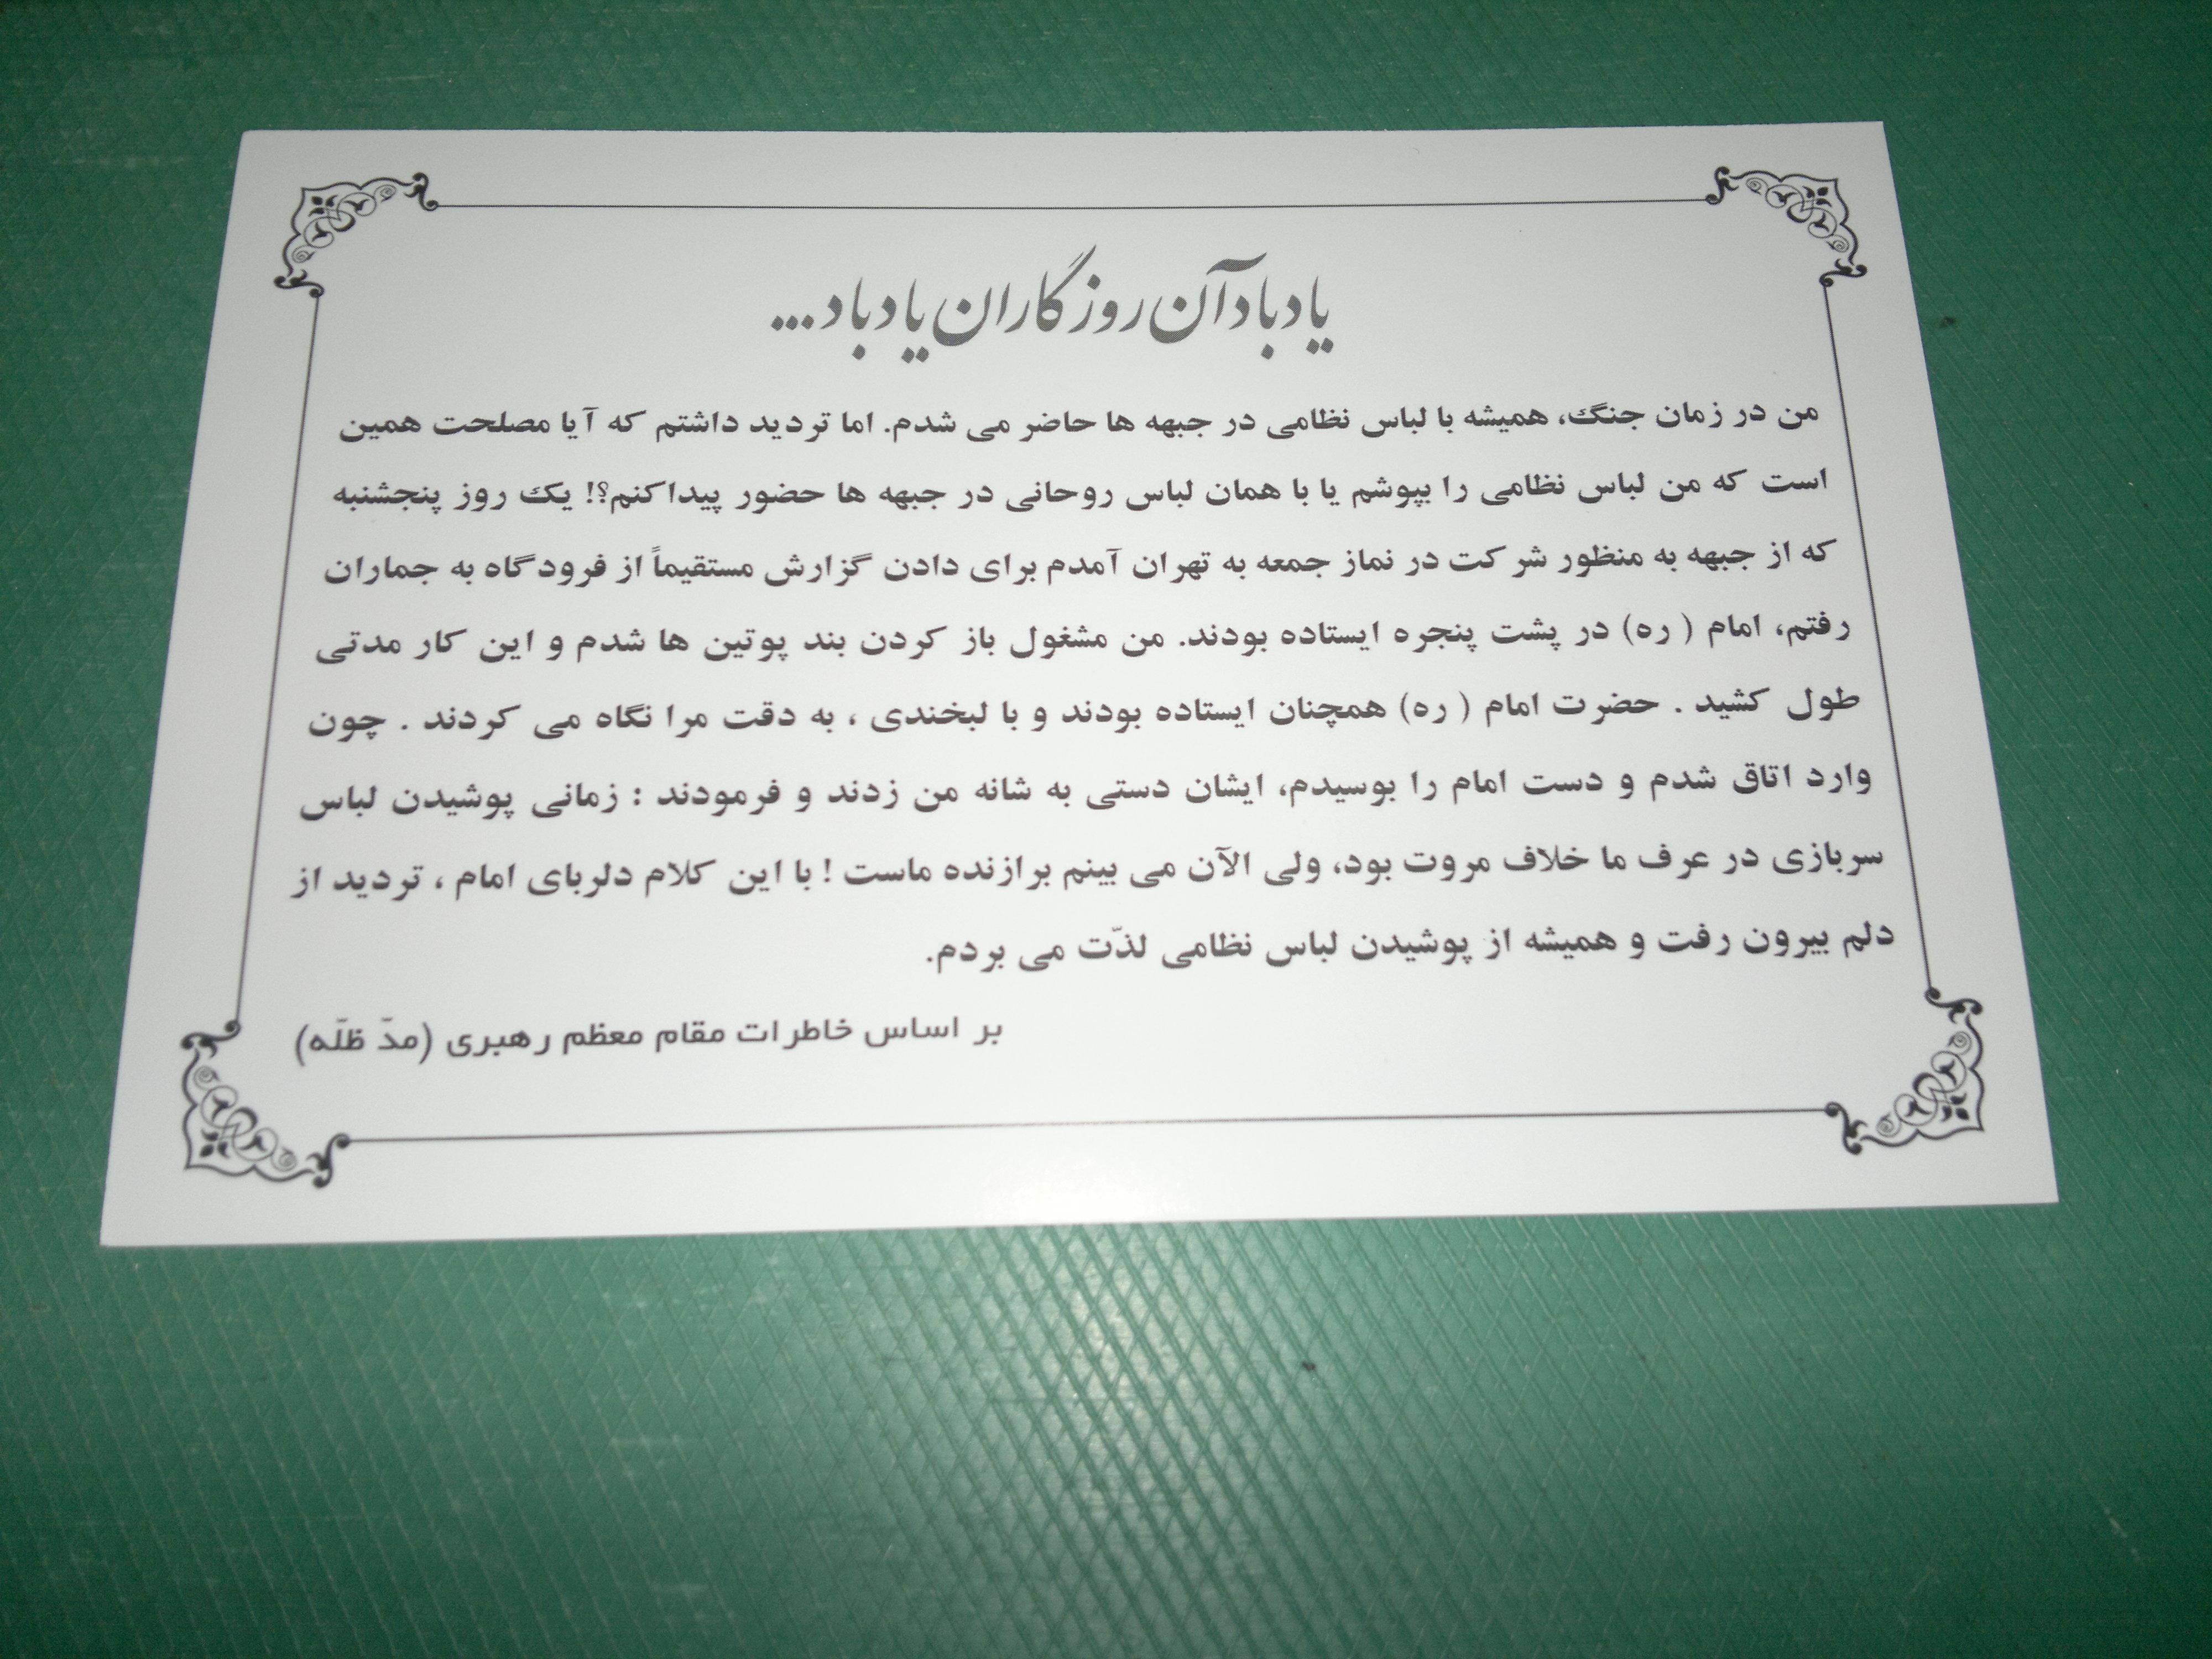 یاد باد آن روزگاران یاد باد...
من در زمان جنگ، همیشه با لباس نظامی در جبهه ها حاضر می شدم. اما تردید داشتم که آیا مصلحت همین
است که من لباس نظامی را بپوشم یا با همان لباس روحانی در جبهه ها حضور پیدا کنم؟! یک روز پنجشنبه
که از جبهه به منظور شرکت در نماز جمعه به تهران آمدم برای دادن گزارش مستقیماً از فرودگاه به جماران
رفتم، امام ( ره) در پشت پنجره ایستاده بودند. من مشغول باز کردن بند پوتین ها شدم و این کار مدتی
طول کشید . حضرت امام ( ره) همچنان ایستاده بودند و با لبخندی ، به دقت مرا نگاه می کردند . چون
وارد اتاق شدم و دست امام را بوسیدم، ایشان دستی به شانه من زدند و فرمودند : زمانی پوشیدن لباس
سربازی در عرف ما خلاف مروت بود، ولی الآن می بینم برازنده ماست ! با این کلام دلربای امام ، تردید از
دلم بیرون رفت و همیشه از پوشیدن لباس نظامی لذّت می بردم.
بر اساس خاطرات مقام معظم رهبری (مدّ ظلّه)